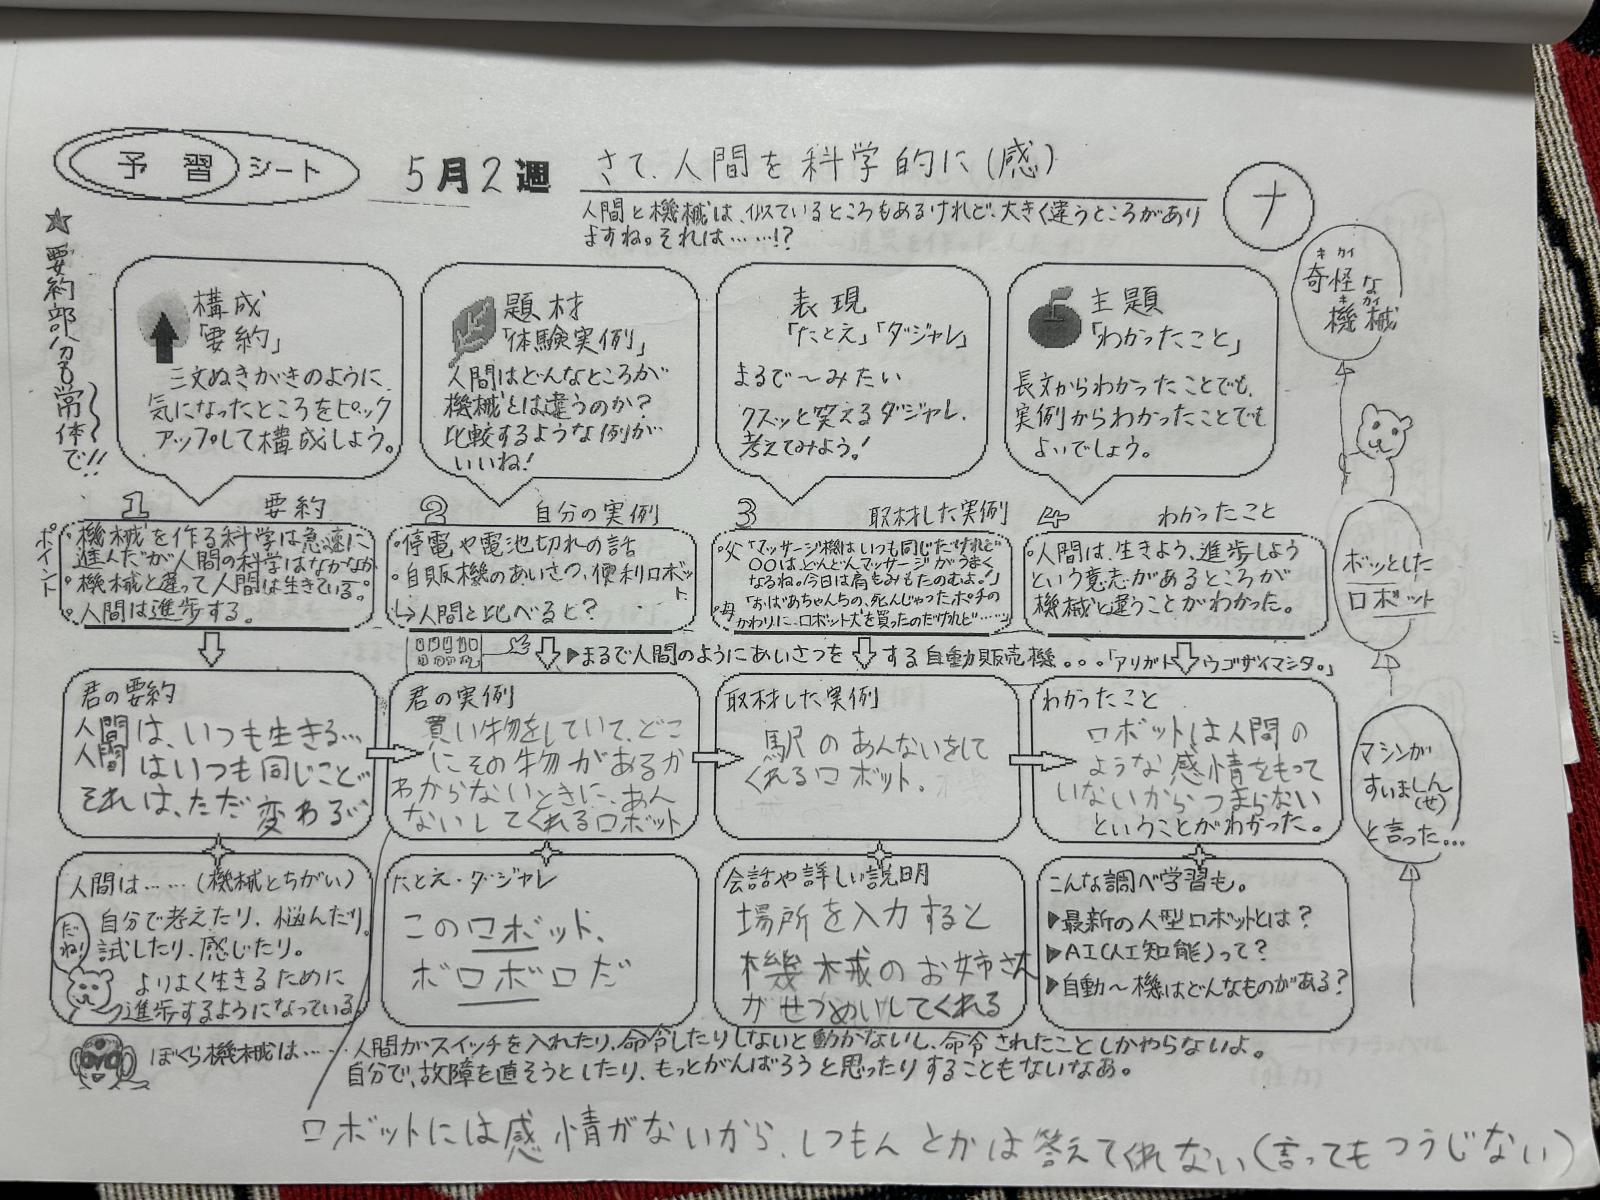 予習シート
5月2週
さて、人間を科学的に(感)
人間と機械は、似ているところもあるけれど、大きく違うところがあり
ますね。それは……!?
ナ
★要約部分も常体で!!
構成
「要約」
三文ぬきがきのように
気になったところをピック
アップして構成しよう。
題材
「体験実例」
人間はどんなところが
機械とは違うのか?
比較するような例が
いいね!
表現
「たとえ」「ダジャレ」
まるで〜みたい
クスッと笑えるダジャレ、
考えてみよう!
主題
「わかったこと」
長文からわかったことでも、
実例からわかったことでも
よいでしょう。
キカイ
奇怪な
キカイ
機械
ボッとした
ロボット
マシンが
すいましん
(せ)
と言った…
ポイント
1 要約
・機械を作る科学は急速に
進んだが人間の科学はなかなか
・機械と違って人間は生きている。
・人間は進歩する。
2 自分の実例
・停電や電池切れの話
・自販機のあいさつ、便利ロボット
↳人間と比べると?
3 取材した実例
・父「マッサージ機はいつも同じだけれど
〇〇は、どんどんマッサージがうまく
なるね。今日は肩もみもたのむよ。!」
・母「おばあちゃんちの、死んじゃったポチの
かわりに、ロボット犬を買ったのだけれど……
4 わかったこと
・人間は、生きよう、進歩しよう
という意志があるところが
機械と違うことがわかった。
▶まるで人間のようにあいさつをする自動販売機。。。「アリガトウゴザイマシタ。」
君の要約
人間は、いつも生きる…
人間はいつも同じことで
それは、ただ変わるが
君の実例
買い物をしていて、どこ
にその物があるか
わからないときに、あん
ないしてくれるロボット
取材した実例
駅のあんないをして
くれるロボット、
わかったこと
ロボットは人間の
ような感情をもって
いないからつまらない
ということがわかった。
人間は……(機械とちがい)
だね!
自分で考えたり、悩んだり、
試したり、感じたり。
よりよく生きるために
進歩するようになっている
たとえ・ダジャレ
このロボット、
ボロボロだ
会話や詳しい説明
場所を入力すると
機械のお姉さん
がせつめいしてくれる
こんな調べ学習も。
▶最新の人型ロボットとは?
▶AI(人工知能)って?
▶自動〜機はどんなものがある?
ぼくら機械は……人間がスイッチを入れたり、命令したりしないと動かないし、命令されたことしかやらないよ。
自分で、故障を直そうとしたり、もっとがんばろうと思ったりすることもないなあ。
ロボットには感情がないから、しつもんとかは答えてくれない(言ってもつうじない)